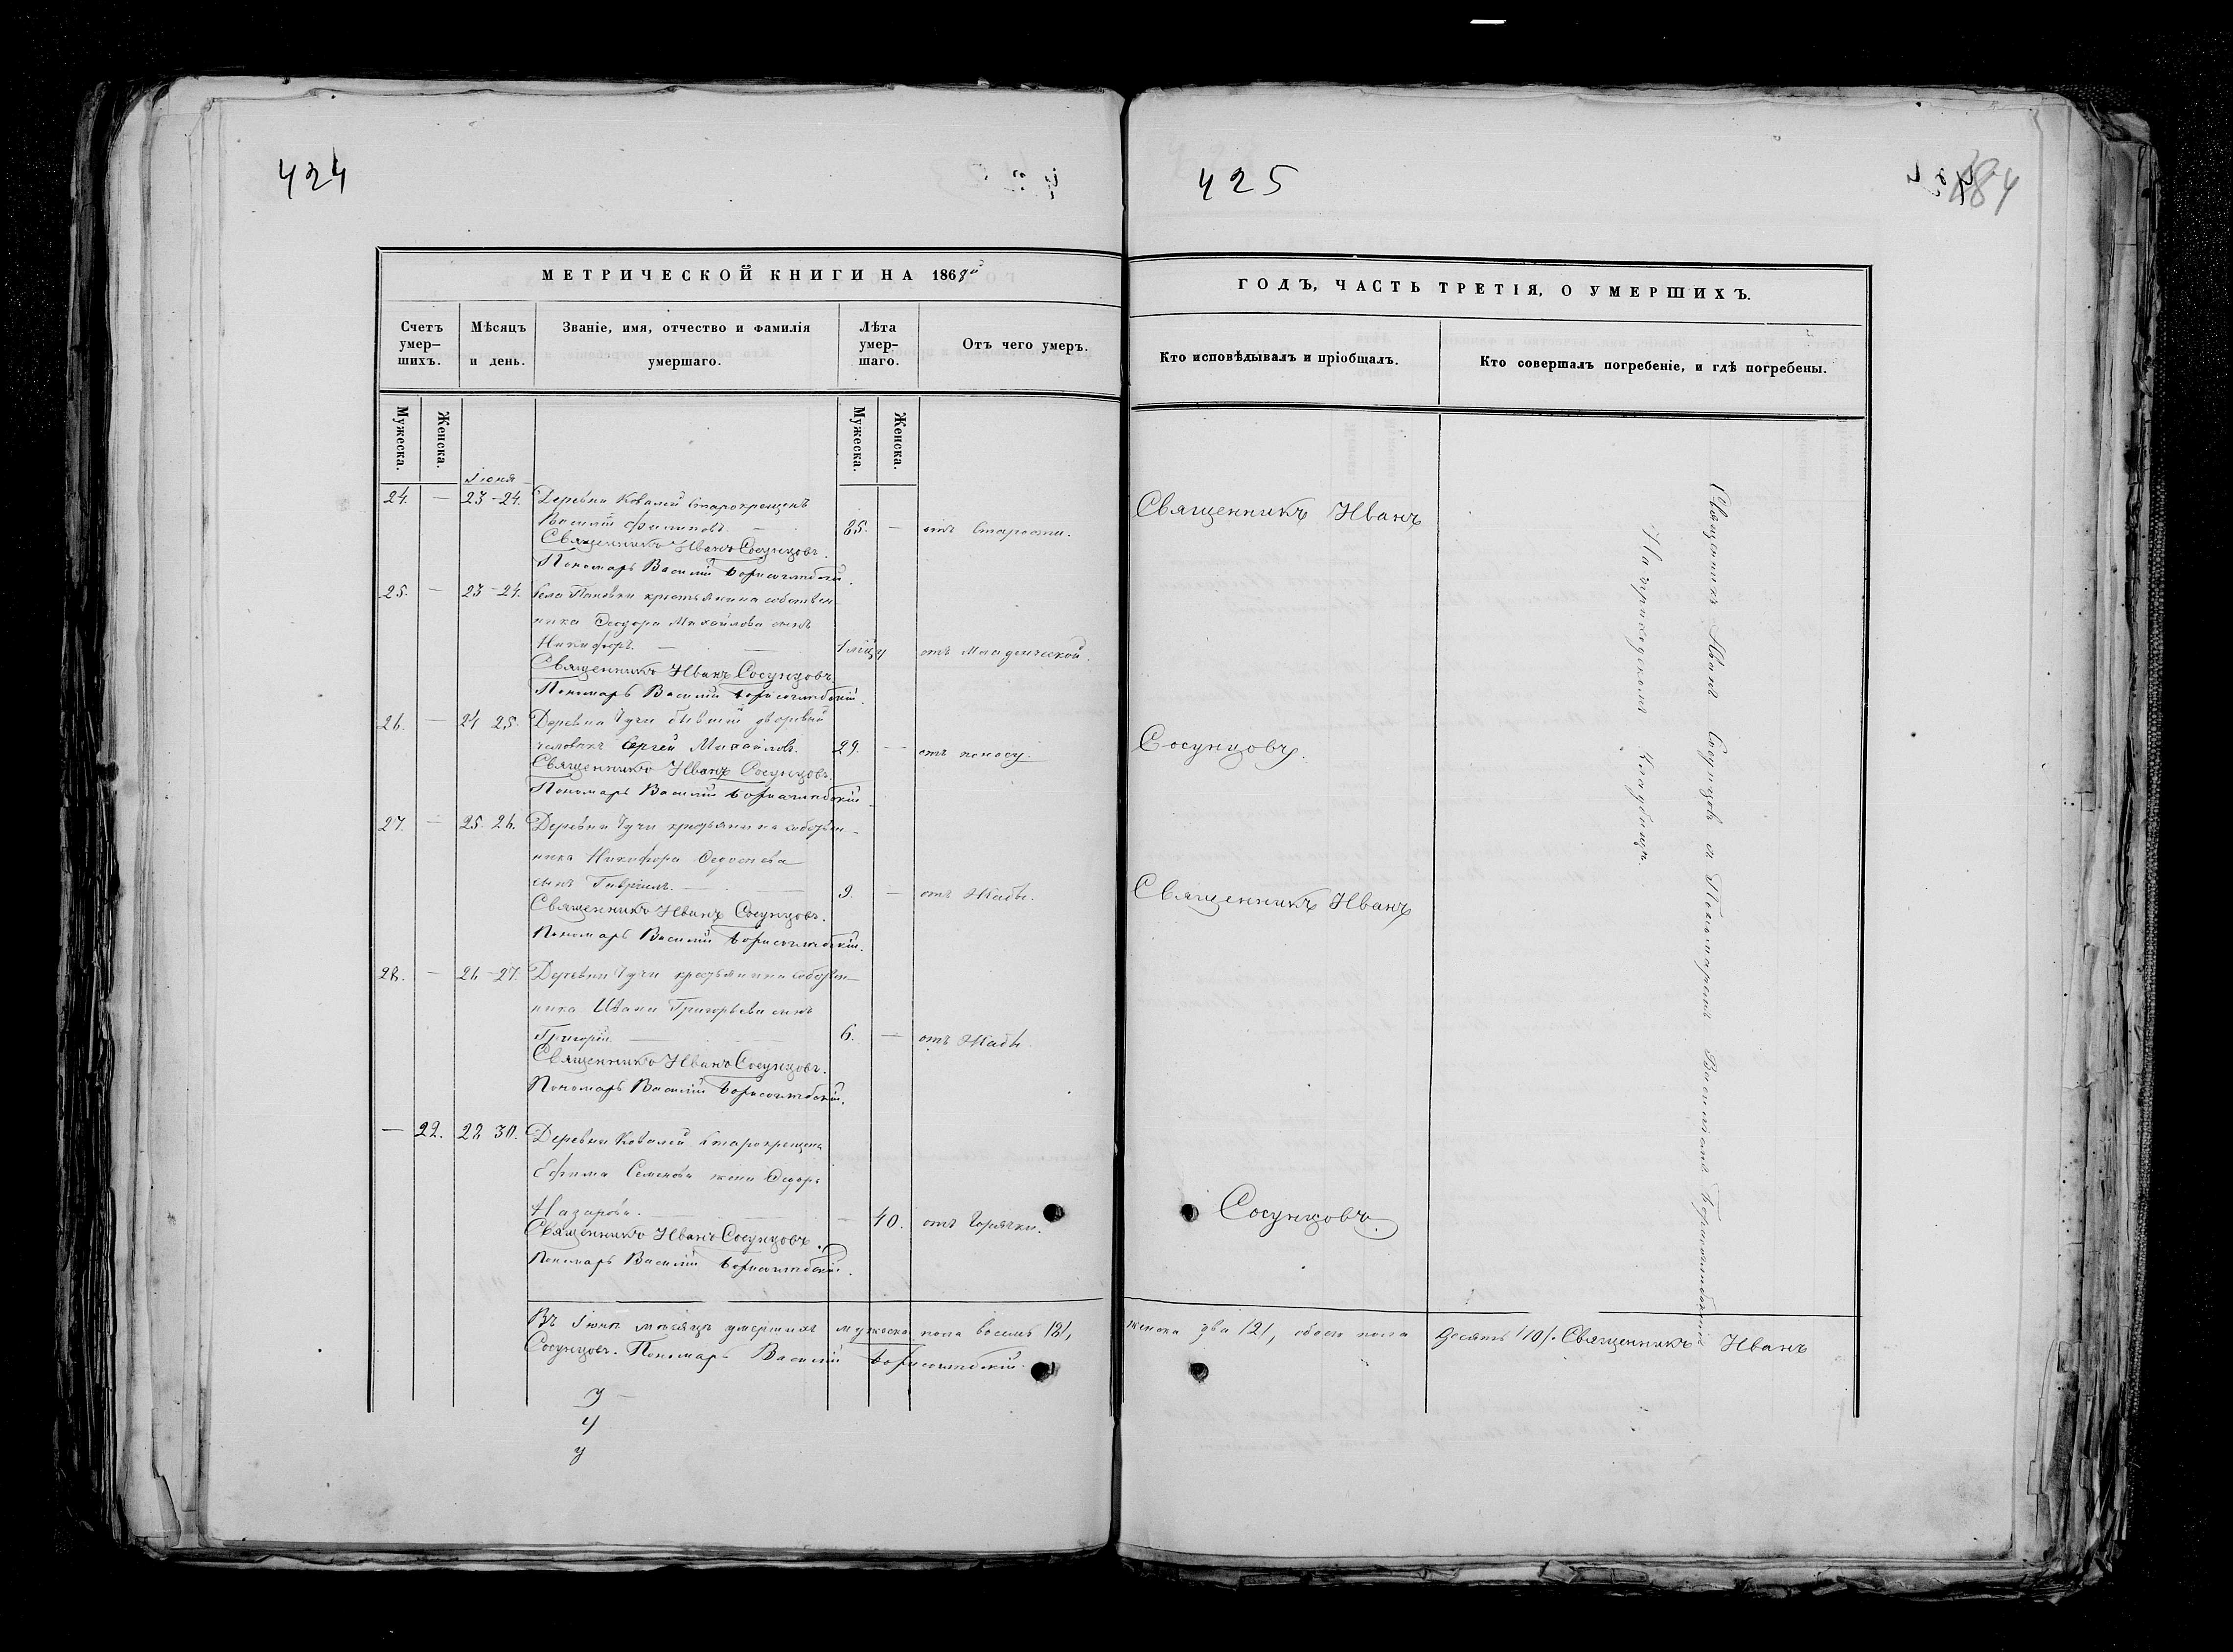 424
425
184
МЕТРИЧЕСКОЙ КНИГИ НА 1868й
ГОДЪ, ЧАСТЬ ТРЕТІЯ, О УМЕРШИХЪ.
Счетъ умер–шихъ.
Мѣсяцъ и день.
Званіе, имя, отчество и фамилія умершаго.
Лѣта умер–шаго.
Отъ чего умеръ.
Кто исповѣдывалъ и пріобщалъ.
Кто совершалъ погребеніе, и гдѣ погребены.
Мужеска. Женска.
Мужеска. Женска.
Іюня
24. — 23-24. Деревни Ковалей старокрещенъ
Василій Филиповъ. — 85. — отъ Старости.
Священникъ Иванъ Сосунцовъ.
Пономарь Василій Борисоглебскій.
25. — 23-24. Села Пановки крестьянина собствен-
ника Ѳеодора Михайлова сынъ
Никифоръ. — отъ младенческой.
Священникъ Иванъ Сосунцовъ
Пономарь Василій Борисоглебскій.
26. — 24 25. Деревни Чучи бывшій дворовый
человѣкъ Сергей Михайловъ. 29. — отъ поносу.
Священникъ Иванъ Сосунцовъ.
Пономарь Василій Борисоглебскій
27. — 25. 26. Деревни Чучи крестьянина собствен-
ника Никифора
сынъ Гавріилъ. — 9. — отъ Жабы.
Священникъ Иванъ Сосунцовъ.
Пономарь Василій Борисоглебскій.
28. — 26-27. Деревни Чучи крестьянина собствен-
ника Ивана Григорьева сынъ
Григорій — 6. — отъ Жабы
Священникъ Иванъ Сосунцовъ.
Пономарь Василій Борисоглебскій.
— 22. 28 30. Деревни Ковалей старокрещена
Ефима Семенова жена Ѳедора
Назарова. — 40. отъ Горячки.
Священникъ Иванъ Сосунцовъ.
Пономарь Василій Борисоглебскій.
Священникъ Иванъ
Сосунцовъ.
Священникъ Иванъ
Сосунцовъ.
Священникъ Иванъ Сосунцовъ съ Пономаремъ Василіемъ Борисоглебскимъ
На приходскомъ кладбищѣ.
Въ Іюнѣ мѣсяцѣ умершихъ мужеска пола восемь /8/, женска два /2/, обоего пола десять /10/. Священникъ Иванъ
Сосунцовъ. Пономарь Василій Борисоглебскій.